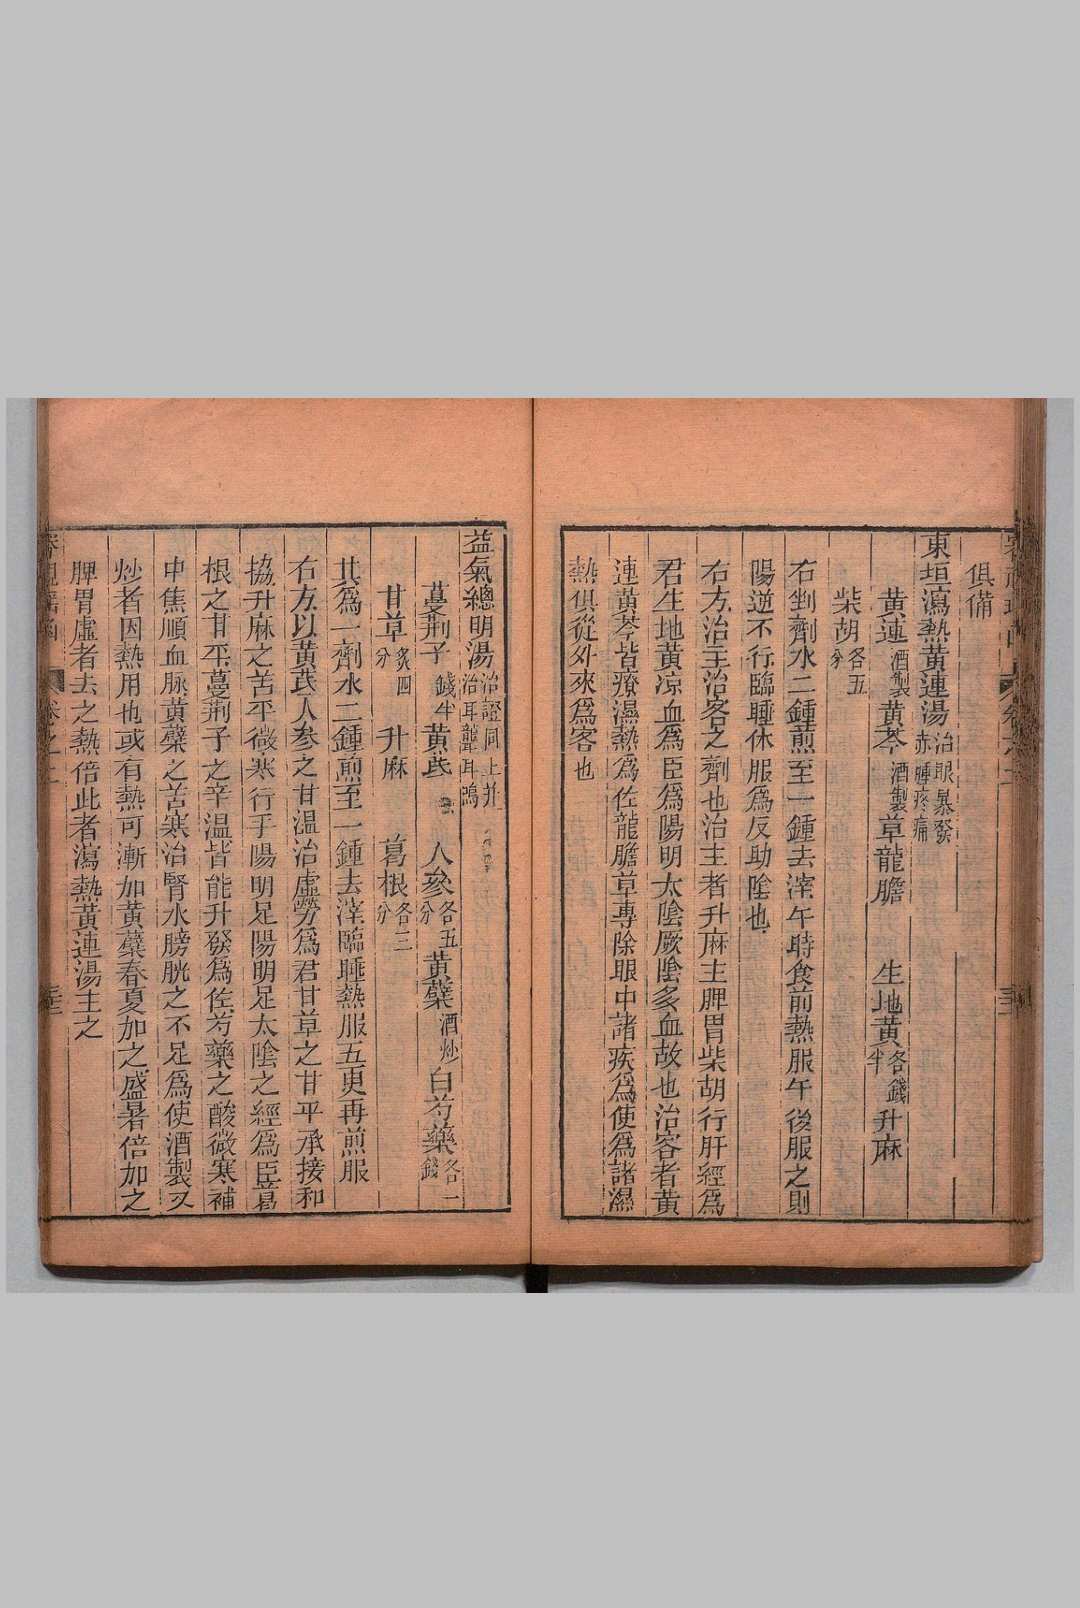 俱備
東垣瀉熱黃連湯治眼暴發赤腫疼痛
黃連酒製黃芩酒製草龍膽 生地黃各錢半升麻
柴胡各五分
右剉劑水二鍾煎至一鍾去滓午時食前熱服午後服之則
陽逆不行臨睡休服爲反助陰也
右方治主治客之劑也治主者升麻主脾胃柴胡行肝經爲
君生地黃凉血爲臣爲陽明太陰厥陰多血故也治客者黃
連黃芩皆療濕熱爲佐龍膽草專除眼中諸疾爲使爲諸濕
熱俱從外來爲客也
三十二
益氣總明湯治證同上并治耳聾耳鳴
蔓荆子錢半黃茋 人參各五分黃蘗酒炒白芍藥各一錢
甘草炙四分 升麻 葛根各三分
共爲一劑水二鍾煎至一鍾去滓臨睡熱服五更再煎服
右方以黃茋人參之甘温治虛勞爲君甘草之甘平承接和
協升麻之苦平微寒行手陽明足陽明足太陰之經爲臣葛
根之甘平蔓荆子之辛温皆能升發爲佐芍藥之酸微寒補
中焦順血脉黃蘗之苦寒治腎水膀胱之不足爲使酒製又
炒者因熱用也或有熱可漸加黃蘗春夏加之盛暑倍加之
脾胃虛者去之熱倍此者瀉熱黃連湯主之
審視瑶函 卷之二